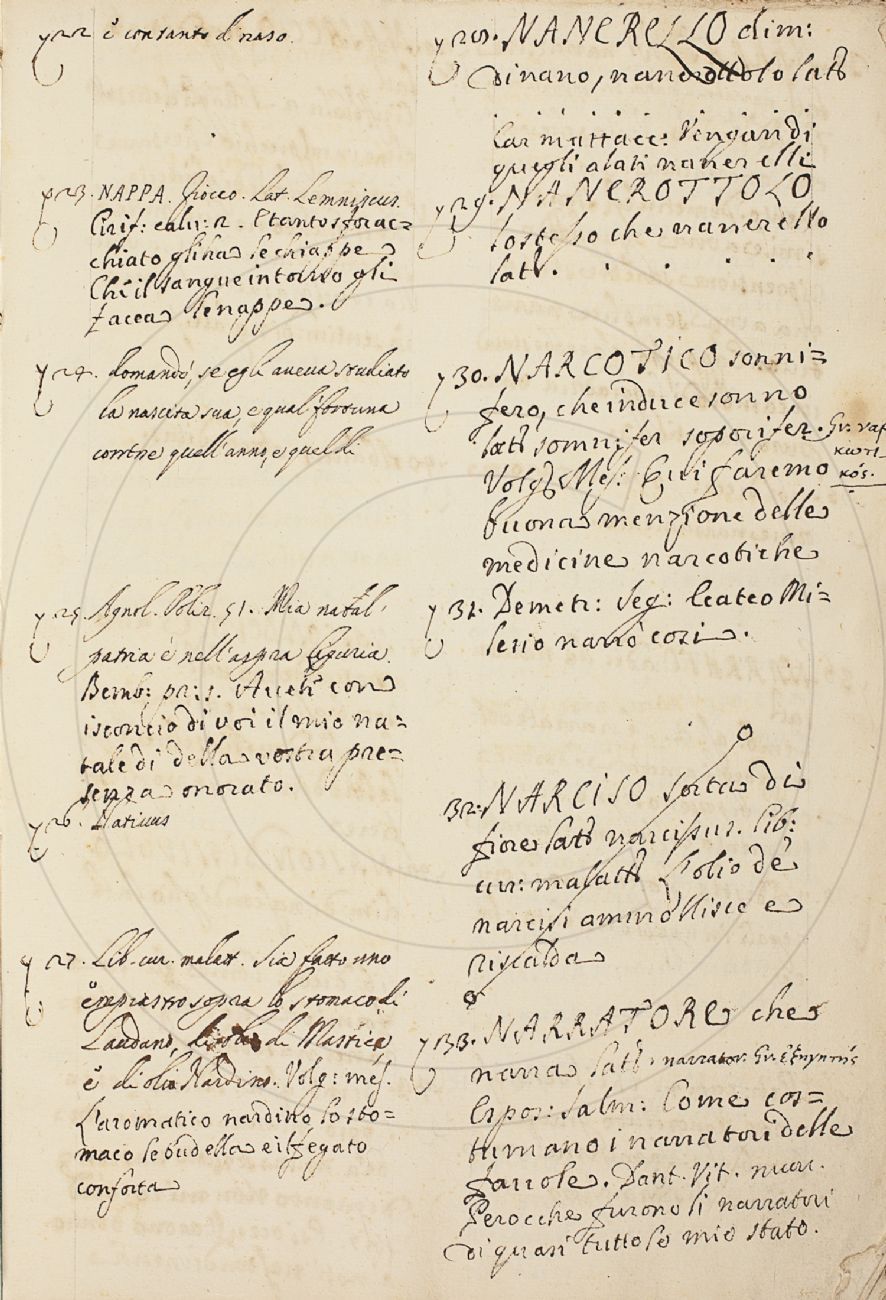 22 è contanto di naso.
23. NAPPA. Fiocco. Lat. Lemniscus.
Cirif: calv: 2. E tanto sforac=
chiato gli ha le chiappe
Che il sangue intorno gli
facea le nappe.
24. domandò, se egli aveva studiato
la nascita sua, e qual fortuna
corre quell'anno, e quel dì
25. Agnol. Poliz. 51. Mia natal
patria è nell'aspra Liguria.
Bemb: pr: 1. Aveti con
isconcio di voi il mio na=
tale dì della vostra pre=
senza onorato.
26. Nativus
27. Lib. cur. malatt. Sia fatto uno
empiastro sopra lo stomaco di
Laudano, di olio di Mastice
e di olio Nardino. Volg: mes.
L'aromatico nardino lo sto=
maco le budella e il fegato
conforta
28. NANERELLO dim:
di nano, nanerottolo lat.
Car mattacc: Vengan di
quegli alati nanerelli
29. NANEROTTOLO
lo stesso che nanerello
lat.
30. NARCOTICO sonni=
fero, che induce sonno
lat. somnifer soporifer. Gr: ναρ
κωτι
κός.
Volg. Mes: Qui faremo
buona menzione delle
medicine narcotiche
31. Demetr: Seg: Ecateo Mi=
lesio narrò così.
32. NARCISO sorta di
fiore lat. narcissus. Lib:
cur: malatt. L'olio de'
narcisi ammollisce e
riscalda
33. NARRATORE che
narra lat. narrator. Gr: ἐξηγητής
Espos: Salm: Come cos=
tumano i narratori delle
favole. Dant. Vit. nuov.
Perocche furono li narratori
di quasi tutto lo mio stato.